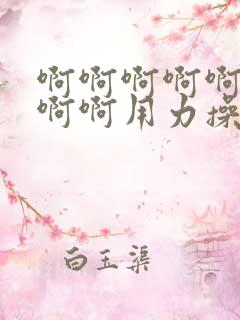 啊啊啊啊啊
啊啊用力操
白玉渠